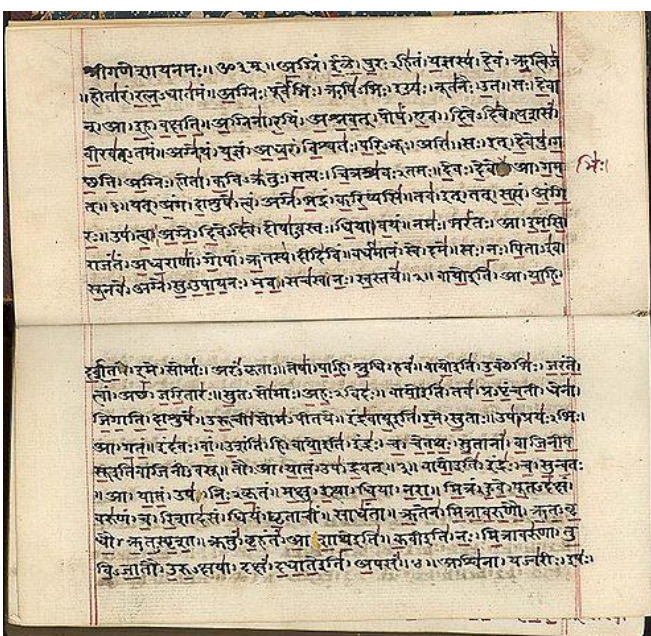 श्रीगणेशायनमः॥ॐ३म्॥अग्निं।ईळे।पुरःऽहितं।यज्ञस्य।देवं।ऋत्विजं
।होतारं।रत्नऽधातमं॥अग्निः।पूर्वेभिः।ऋषिऽभिः।ईड्यः।नूतनैः।उत॥सः।देवा
न्।आ।इह।वक्षति॥अग्निना।रयिं।अश्नवत्।पोषं।एव।दिवेऽदिवे॥यशसं
वीरवत्ऽतमं॥अग्ने।यं।यज्ञं।अध्वरं।विश्वतः।परिऽभूः।असि॥सः।इत्।देवेषु।ग
च्छति।अग्निः।होता।कविऽक्रतुः।सत्यः।चित्रश्रवःऽतमः॥देवः।देवे।आ।गम भिः।
त्॥१॥यत्।अंग।दाशुषे।त्वं।अग्ने।भद्रं।करिष्यसि॥तव।इत्।तत्।सत्यं।अंगि
रः॥उप।त्वा।अग्ने।दिवेऽदिवे।दोषाऽवस्तः।धिया।वयं॥नमः।भरंतः।आ।इमसि
राजंतं।अध्वराणां।गोपां।ऋतस्य।दीदिविं॥वर्धमानं।स्वे।दमे॥सः।नः।पिताऽइव
सूनवे।अग्ने।सुऽउपायनः।भव॥सचस्व।नः।स्वस्तये॥२॥वायोइति।आ।याहि
दर्शत।इमे।सोमाः।अरंऽकृताः॥तेषां।पाहि।श्रुधि।हवं॥वायोइति।उक्थेभिः।जरंते
त्वां।अच्छ।जरितारः॥सुतऽसोमाः।अहःऽविदः॥वायोइति।तव।प्रऽपृंचती।धेना
जिगाति।दाशुषे॥उरूची।सोमऽपीतये॥इंद्रवायूइति।इमे।सुताः॥उप।प्रयःऽभिः।
आ।गतं॥इंदवः।वां।उशंति।हि॥वायोइति।इंद्रः।च।चेतथः।सुतानां।वाजिनीव
सूइतिवाजिनीऽवसू॥तौ।आ।यातं।उप।द्रवत्॥३॥वायोइति।इंद्रः।च।सुन्वतः
॥आ।यातं।उप।निःऽकृतं॥मक्षु।इत्था।धिया।नरा॥मित्रं।हुवे।पूतऽदक्षं
वरुणं।च।रिशादसं॥धियं।घृताचीं।साधंता॥ऋतेन।मित्रावरुणौ।ऋतऽवृ
धौ।ऋतऽस्पृशा॥क्रतुं।बृहंतं।आशाथेइति॥कवीइति।नः।मित्रावरुणा।तु
विऽजातौ।उरुऽक्षया॥दक्षं।दधातेइति।अपसं॥४॥अश्विना।यज्वरीः।इषः।